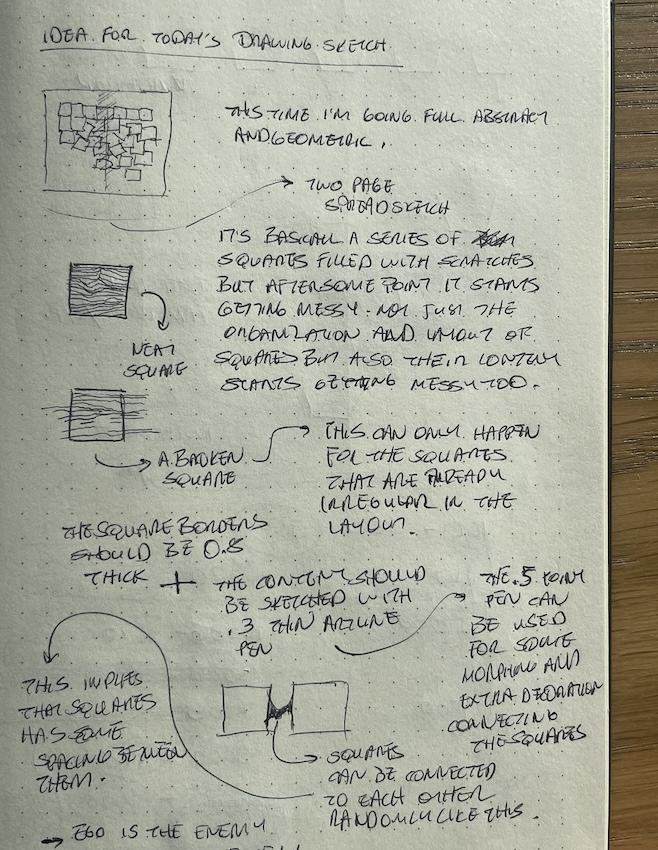 IDEA FOR TODAY'S DRAWING SKETCH
THIS TIME I'M GOING FULL ABSTRACT
AND GEOMETRIC.
TWO PAGE
SPREAD SKETCH
IT'S BASICALL A SERIES OF
SQUARES FILLED WITH SCRATCHES
BUT AFTER SOME POINT IT STARTS
GETTING MESSY. NOT JUST THE
ORGANIZATION AND LAYOUT OF
SQUARES BUT ALSO THEIR CONTENT
STARTS GETTING MESSY TOO.
NEAT
SQUARE
A BROKEN
SQUARE
THIS CAN ONLY HAPPEN
FOR THE SQUARES
THAT ARE ALREADY
IRREGULAR IN THE
LAYOUT.
THE SQUARE BORDERS
SHOULD BE 0.8
THICK +
THE CONTENT SHOULD
BE SKETCHED WITH
.3 THIN ARTLINE
PEN
THE .5 POINT
PEN CAN
BE USED
FOR SOME
MORPHING AND
EXTRA DECORATION
CONNECTING
THE SQUARES
THIS IMPLIES
THAT SQUARES
HAS SOME
SPACING BETWEEN
THEM.
SQUARES
CAN BE CONNECTED
TO EACH OTHER
RANDOMLY LIKE THIS.
→ EGO IS THE ENEMY